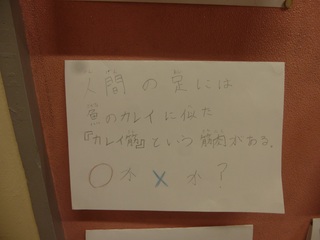 人間の魚には
魚のカレイに似た
『カレイ筋』という筋肉がある。
○か × か？